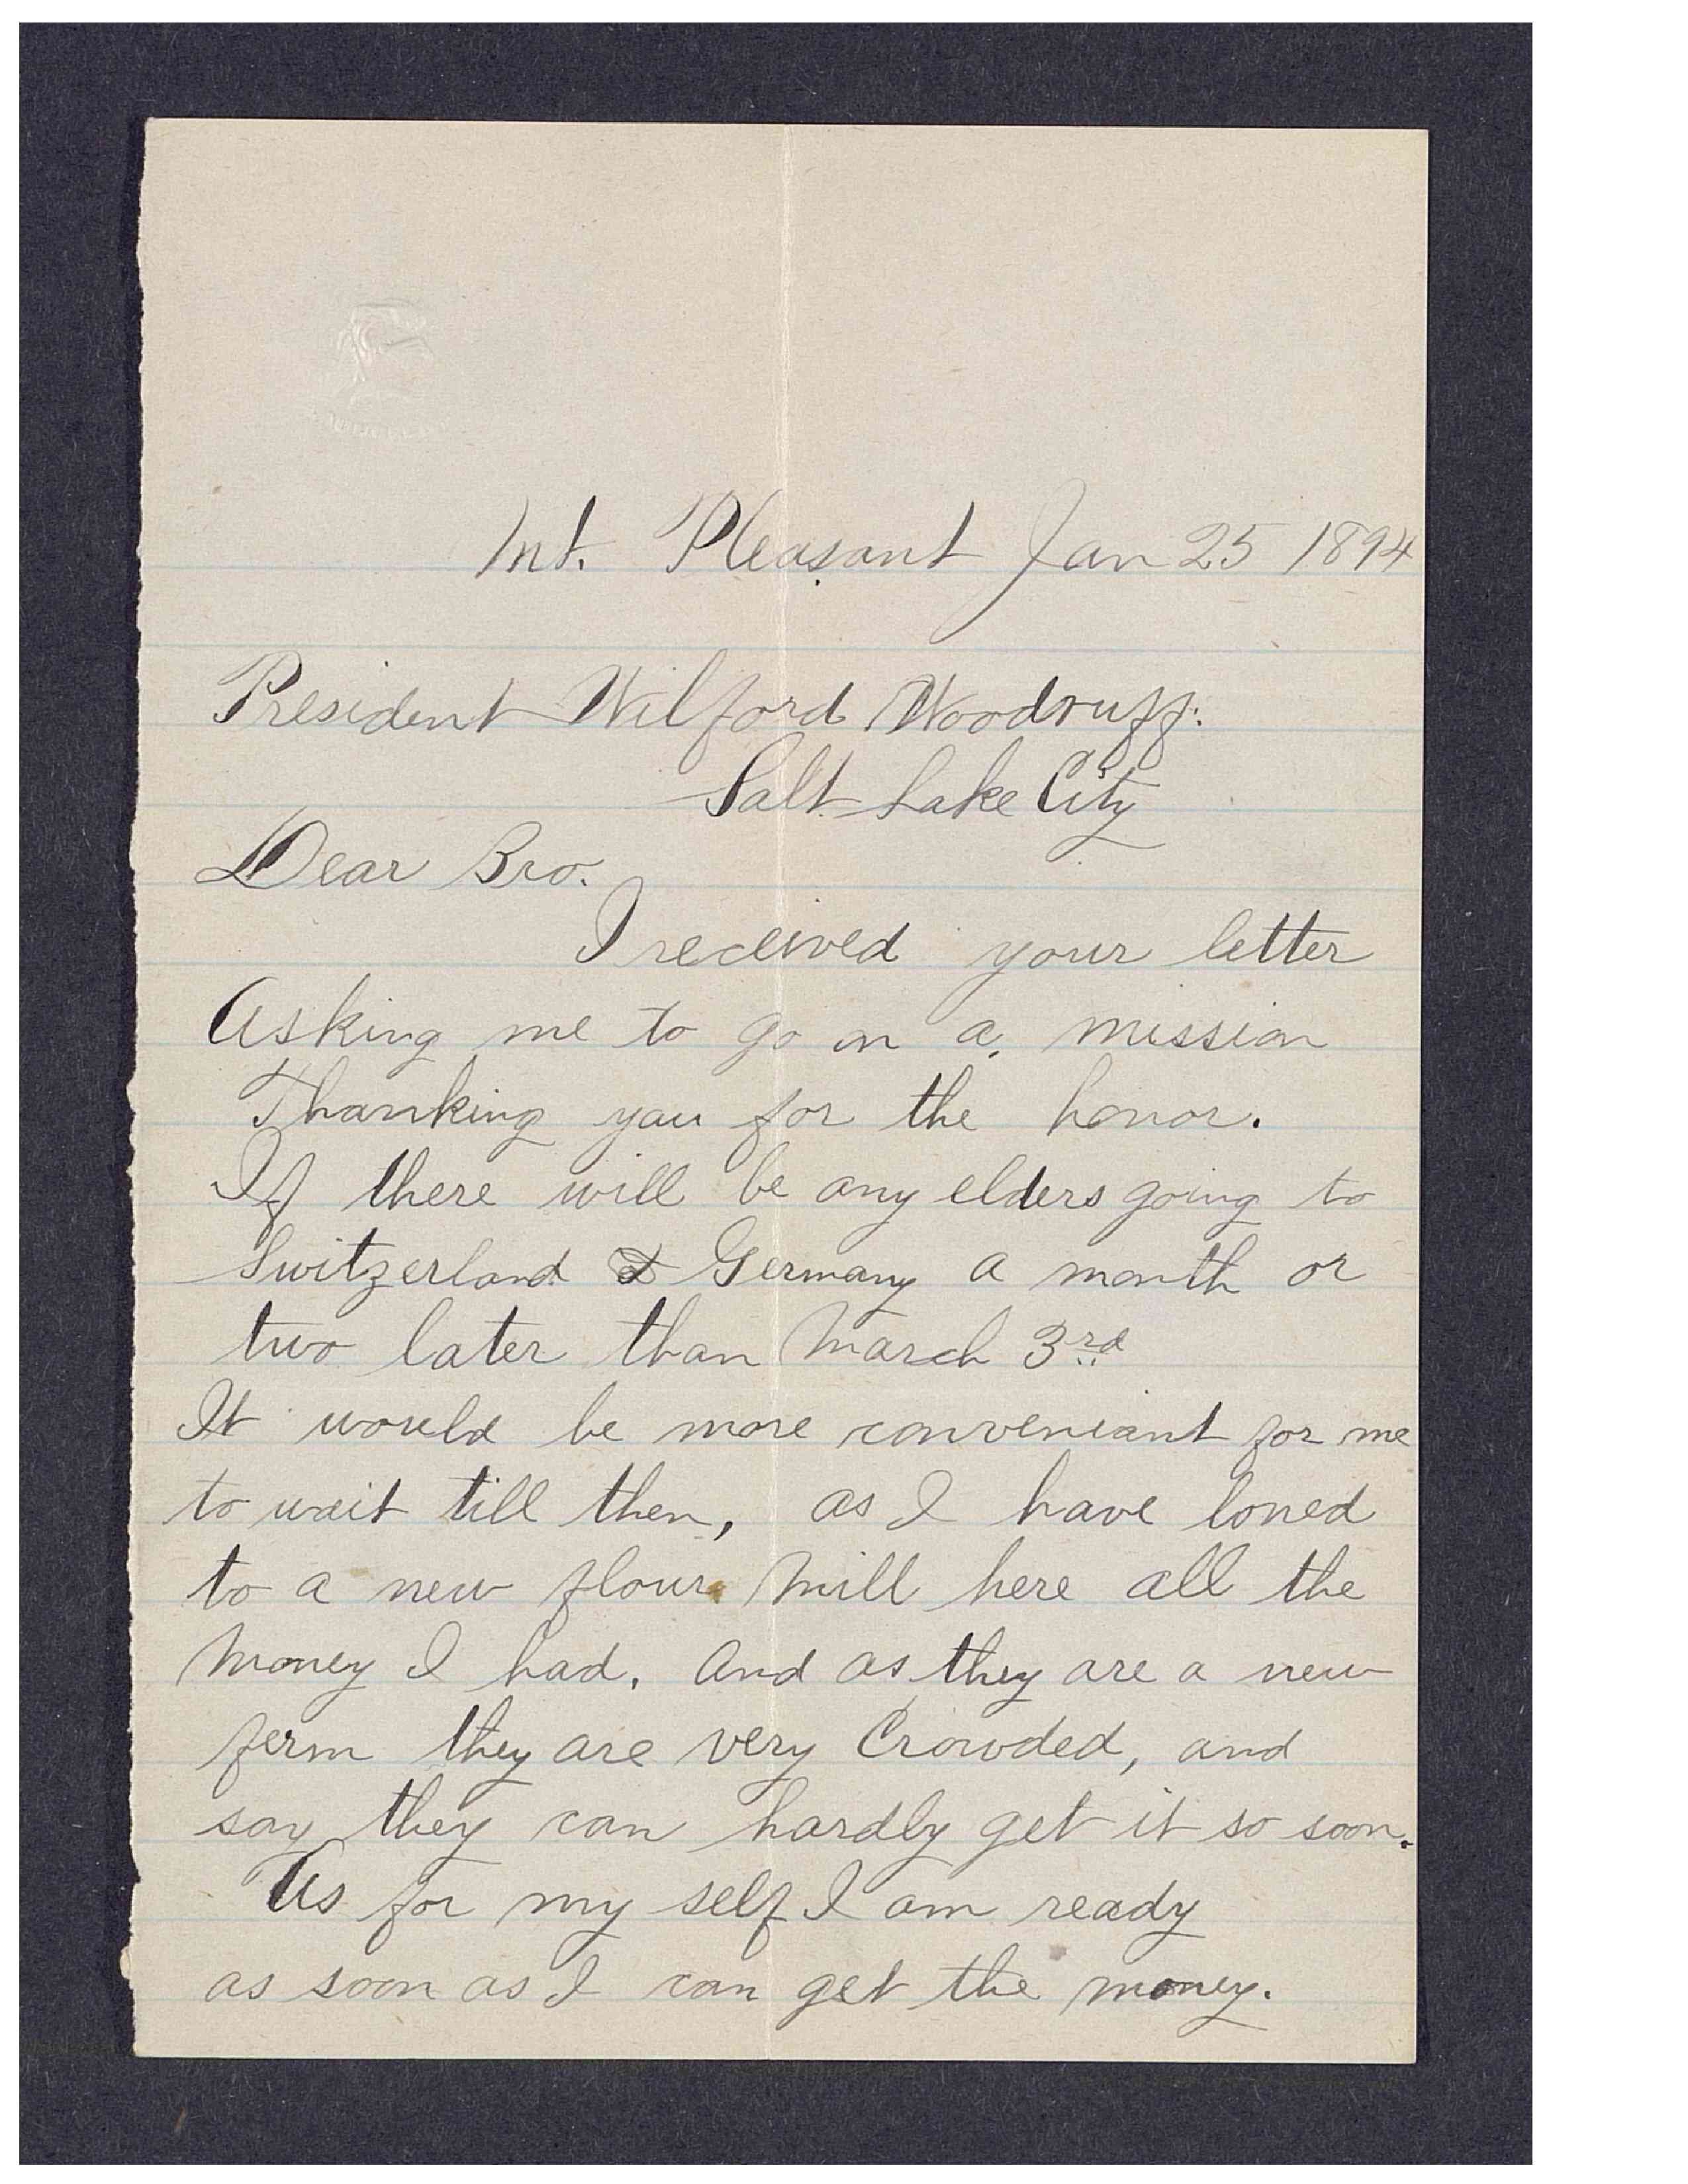 Mt. Pleasant Jan 25 1894
President Wilford Woodruff.
Salt Lake City
Dear Bro.
I received your letter
Asking me to go on a mission
Thanking you for the honor.
If there will be any elders going to
Switzerland & Germany a month or
two later than March 3rd
It would be more conveniant for me
to wait till then, as I have loned
to a new flour Mill here all the
Money I had. And as they are a new
ferm they are very Crowded, and
say they can hardly get it so soon.
As for my self I am ready
as soon as I can get the money.